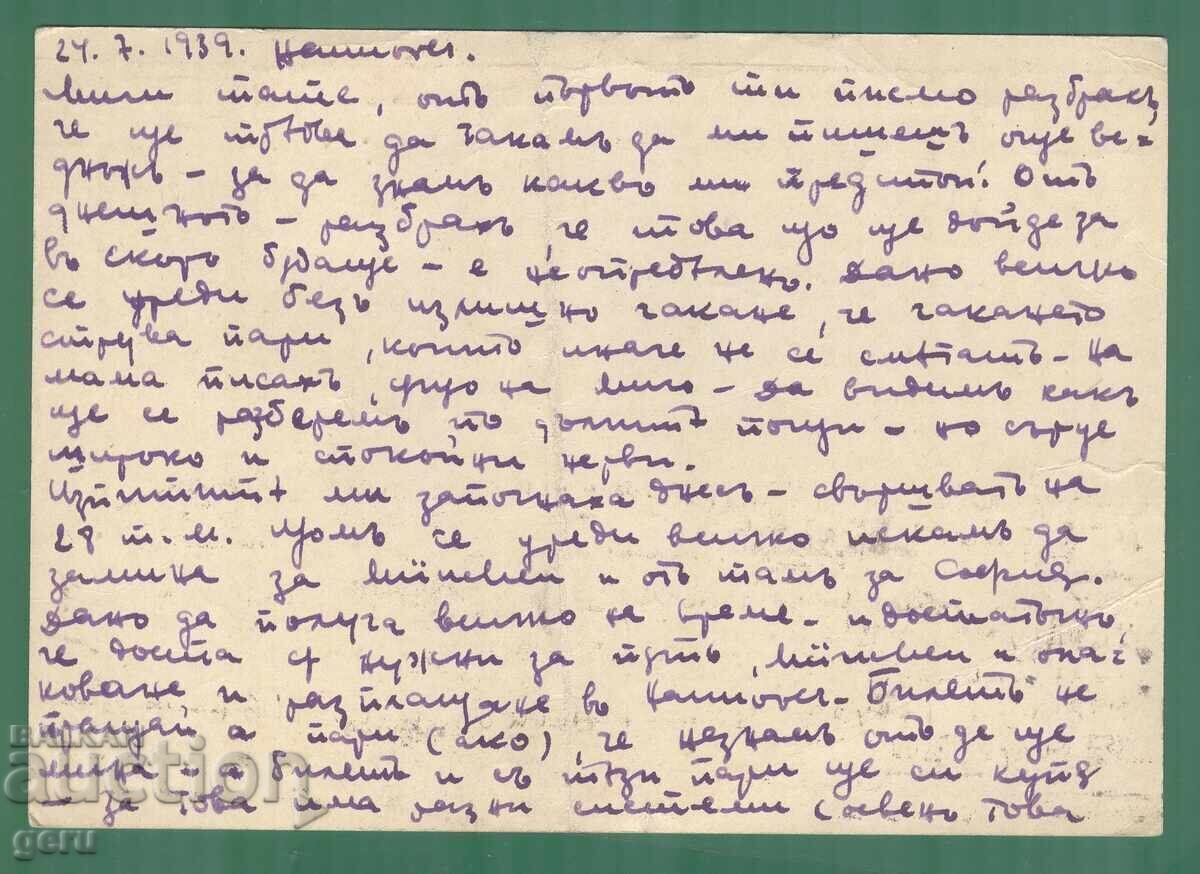 24. 7. 1939. Hannover.
Мили тате, отъ първотъ ти писмо разбрахъ,
че ще трѣбва да чакамъ да ми пишешъ още ве=
днъжъ – за да знамъ какво ми предстои! Отъ
днешното – разбрахъ, че това що ще дойде за
въ скоро бѫдаще – е неопредѣлено. Дано всичко
се уреди безъ излишно чакане, че чакането
струва пари, които иначе не се смѣтатъ – на
мама писахъ, на – да видимъ какъ
ще се разберемъ по дългитѣ пощи – но сърце
широко и спокойни нерви.
Изпититѣ ми започнаха днесъ – свършватъ на
28 т.м. Щомъ се уреди всичко искамъ да
замина за München и отъ тамъ за София.
Дано да получа всичко на време – и достатъчно,
че доста сѫ нужни за пѫть, München и опа=
коване и разплащане въ Hannover – Билетъ не
пращай а пари (ако), че незнамъ отъ де ще
мина – а билетъ и съ тѣзи пари ще си купѭ
– за това има разни системи (освенъ това
БАЛКАН
auction
geru